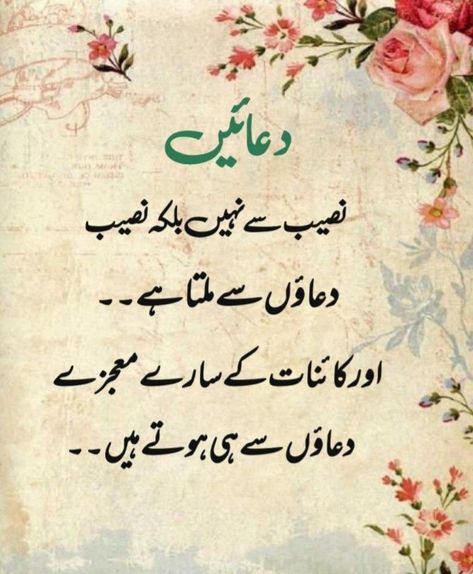 دعائیں
نصیب سے نہیں بلکہ نصیب
دعاؤں سے ملتا ہے ۔۔
اور کائنات کے سارے معجزے
دعاؤں سے ہی ہوتے ہیں ۔۔